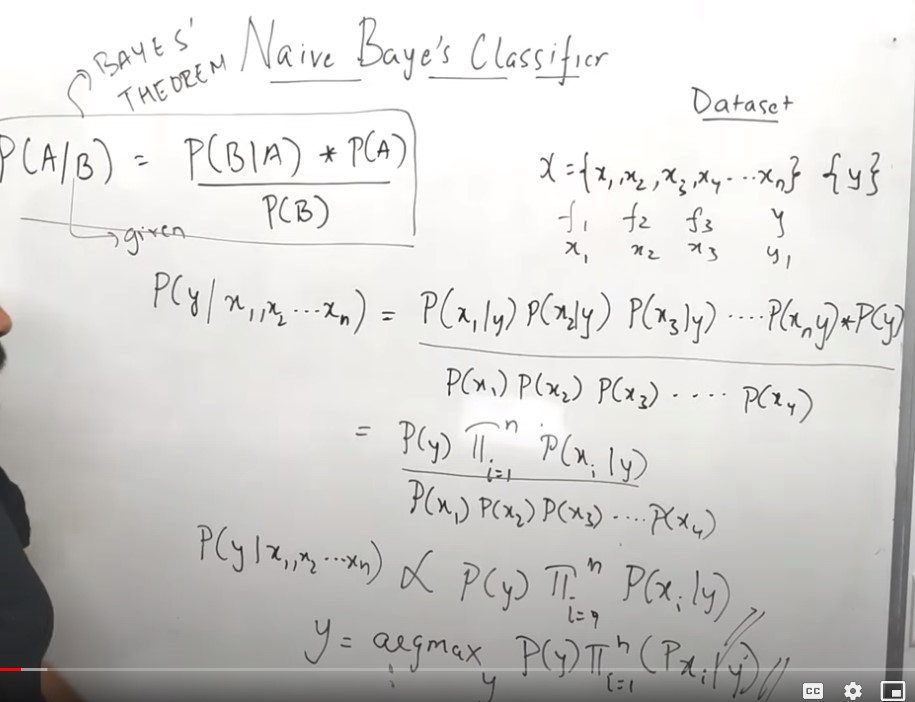 BAYES'
THEOREM
Naive Baye's Classifier
P(A/B) = P(B|A) * P(A)
P(B)
given
Dataset
X = {x₁, x₂, x₃, x₄ ... xₙ} {y}
f₁ f₂ f₃ y
x₁ x₂ x₃ y₁
P(y/x₁, x₂ ... xₙ) = P(x₁|y) P(x₂|y) P(x₃|y) .... P(xₙy)*P(y)
P(x₁) P(x₂) P(x₃) .... P(x₄)
= P(y) Π ⁿ i=1 P(xᵢ|y)
P(x₁) P(x₂) P(x₃) .... P(x₄)
P(y|x₁, x₂ ... xₙ) ∝ P(y) Π ⁿ i=9 P(xᵢ|y)
y = argmax y P(y) Π ⁿ i=1 (Pxᵢ|y)
CC